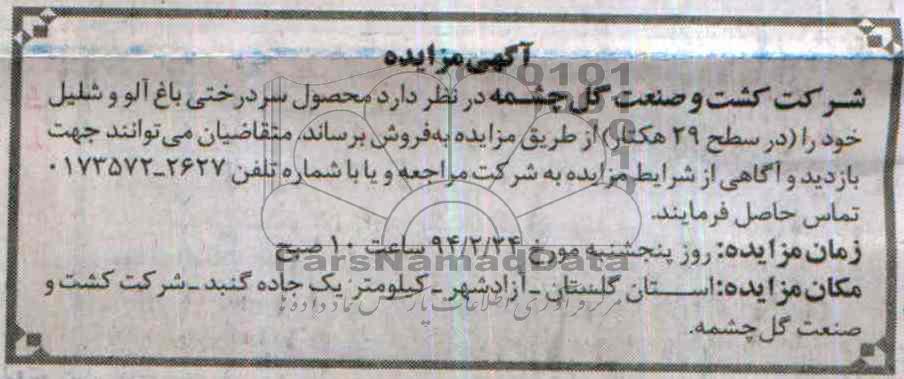 آگهی مزایده
شرکت کشت و صنعت گل چشمه در نظر دارد محصول سردرختی باغ آلو و شلیل
خود را (در سطح ۲۹ هکتار) از طریق مزایده به فروش برساند، متقاضیان می توانند جهت
بازدید و آگاهی از شرایط مزایده به شرکت مراجعه و یا با شماره تلفن ۲۶۲۷-۰۱۷۳۵۷۲
تماس حاصل فرمایند.
زمان مزایده: روز پنجشنبه مورخ ۹۴/۲/۲۴ ساعت ۱۰ صبح
ParsNamadData
مکان مزایده: استان گلستان - آزادشهر - کیلومتر یک جاده گنبد - شرکت کشت و
مرکز فرآوری اطلاعات پارس نماد داده ها
صنعت گل چشمه.